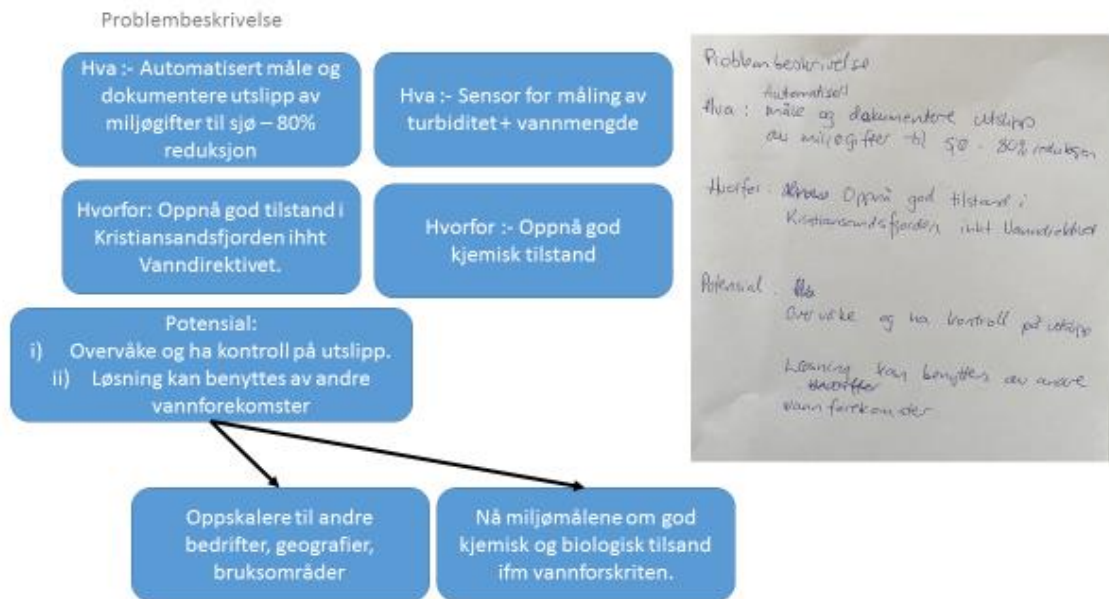 Problembeskrivelse
Hva :- Automatisert måle og
dokumentere utslipp av
miljøgifter til sjø – 80%
reduksjon
Hva :- Sensor for måling av
turbiditet + vannmengde
Hvorfor: Oppnå god tilstand i
Kristiansandsfjorden ihht
Vanndirektivet.
Hvorfor :- Oppnå god
kjemisk tilstand
Potensial:
i) Overvåke og ha kontroll på utslipp.
ii) Løsning kan benyttes av andre
vannforekomster
Oppskalere til andre
bedrifter, geografier,
bruksområder
Nå miljømålene om god
kjemisk og biologisk tilsand
ifm vannforskriten.
Problembeskrivelse
Automatisert
Hva : måle og dokumentere utslipp
av miljøgifter til sjø - 80% reduksjon
Hvorfor : Oppnå god tilstand i
Kristiansandsfjorden ihht Vanndirektivet
Potensial :
Overvåke og ha kontroll på utslipp
Løsning kan benyttes av andre
vannforekomster